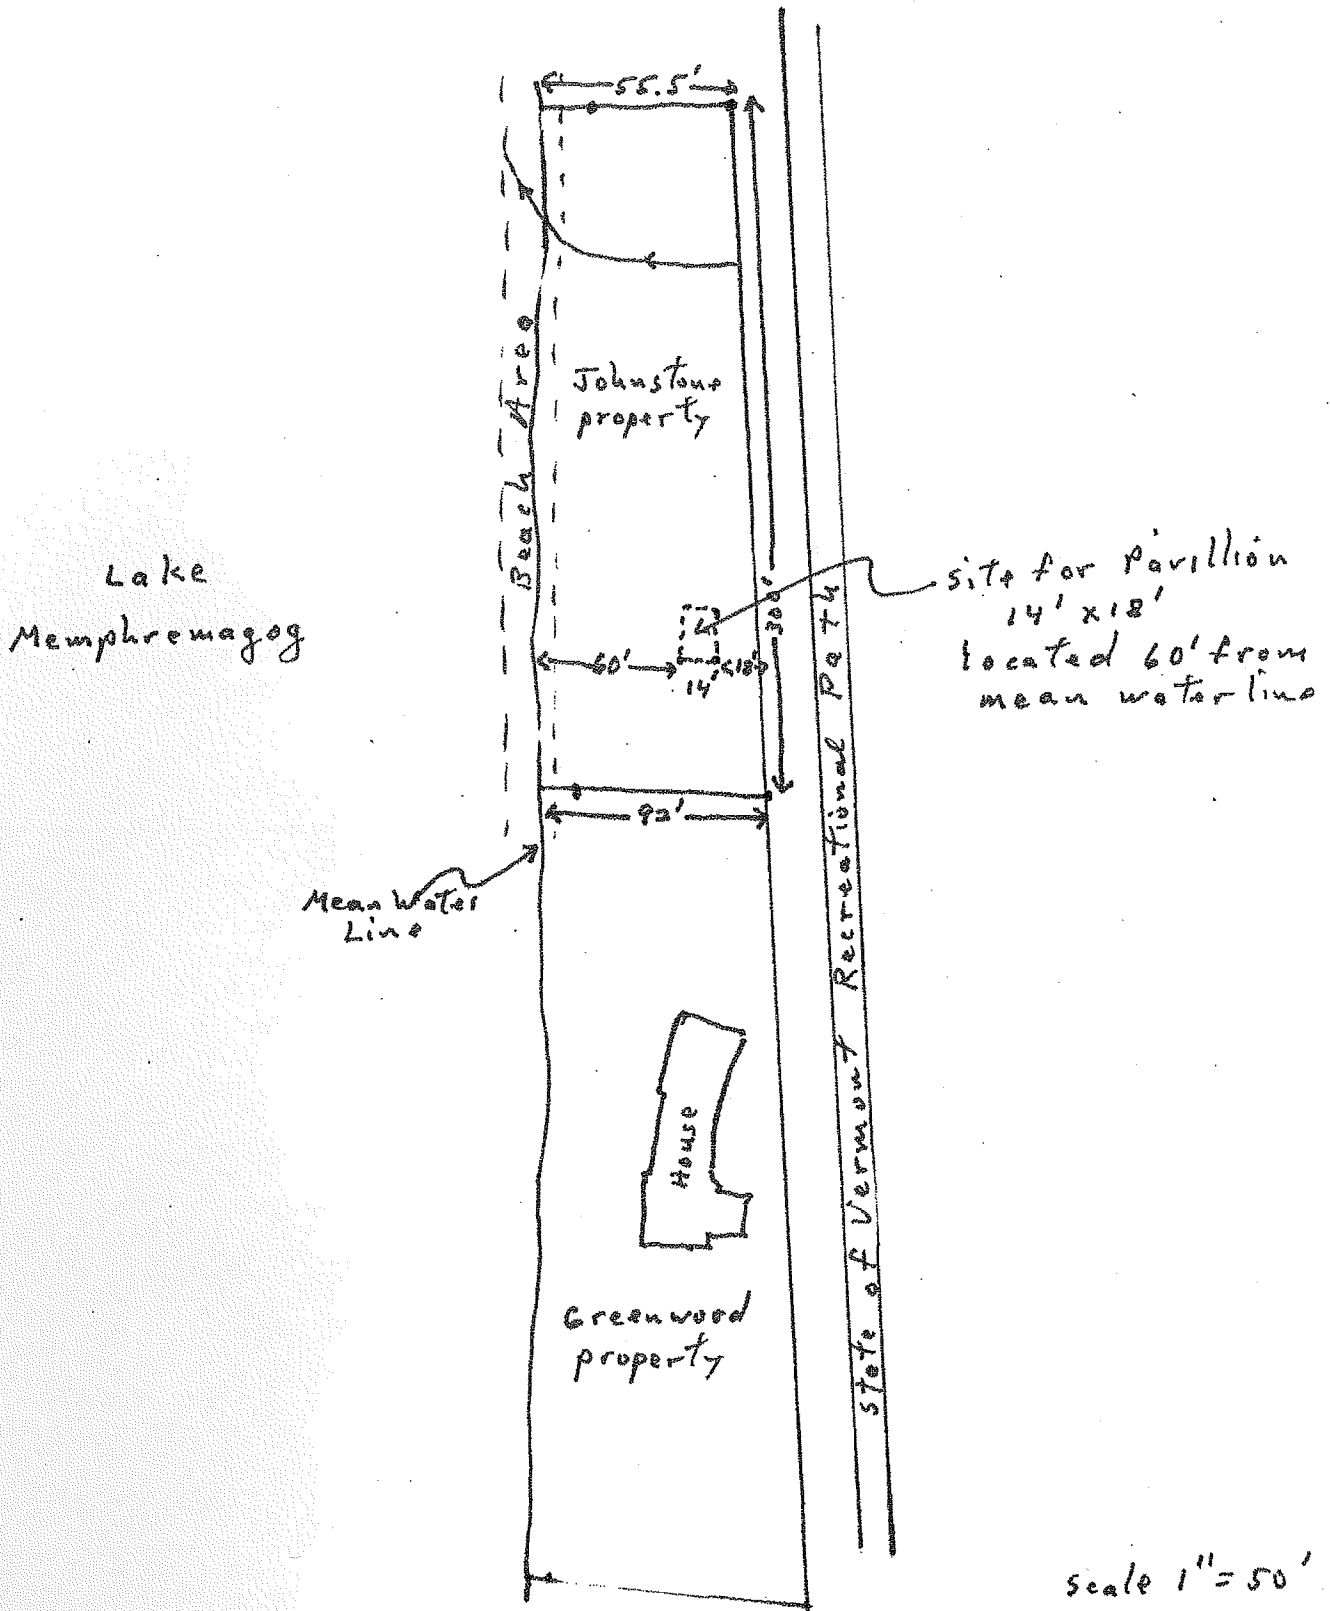 55.5'
Beach Area
Johnstone
property
300'
Lake
Memphremagog
site for Pavillion
14' x 18'
located 60' from
mean water line
60'
14'
18'
92'
Mean Water
Line
State of Vermont Recreational Path
House
Greenwood
property
scale 1" = 50'